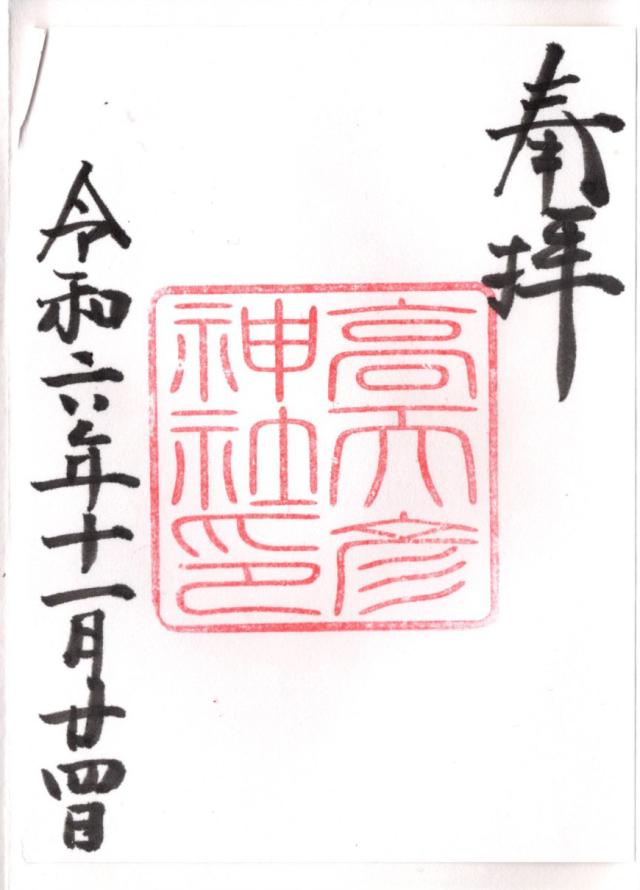 奉拝
高天彦
神社印
令和六年十一月廿四日